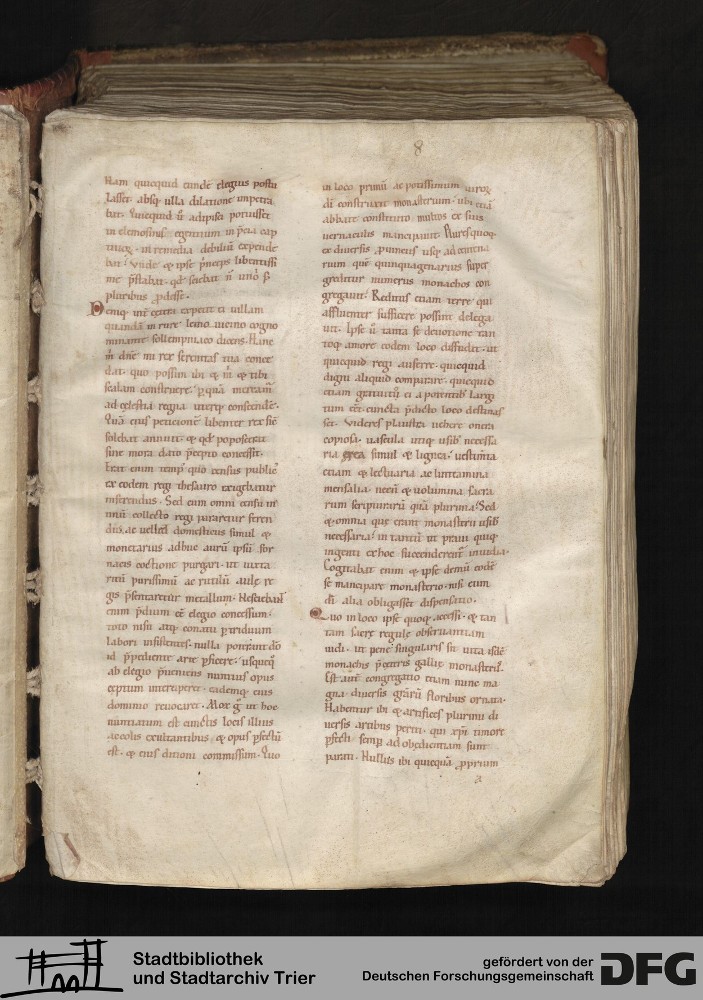 8
Nam quicquid eundē elegius postu
lasset. absq; ulla dilatione impetra
bat. Quicquid ū adipisci potuisset
in elemosinis egentium in p̄cia cap
tiuoꝝ. in remedia debiliū expende
bat. Vnde & ipse p̄nceps libentissi
me p̄stabat. qđ sciebat ñ uno s;
pluribus ꝓdesse.
Deniq; int̄ cetera expetit ei uillam
quandā in rure lemouicino cogno
minante sollempniaco dicens. Hanc
m̄ dn̄e mi rex serenitas tua conce
dat. quo possim ibi & m̄ & tibi
scalam construere. ꝑ quā meream̄
ad celestia regna uterq; conscendē.
Quā eius peticionē libenter rex sic
solebat annuit. & qđ poposcerat
sine mora dato p̄cepto concessit.
Erat enim temp' quo census publicꝰ
ex eodem regi thesauro exigebatur
inferendus. Sed cum omni censu in
unū collecto regi pararetur feren
dus. ac uellet domesticus simul &
monetarius adhuc aurū ipsū for
nacis coctione purgari. ut iuxta
ritū purissimū ac rutilū aule re
gis p̄sentaretur metallum. Nesciebant
enim p̄dium eē elegio concessum.
toto nisu atq; conatu ꝑ triduum
labori insistentes. nulla potuerunt dō
id p̄pediente arte ꝑficere. usquequo
ab elegio p̄ueniens nuntius opus
ceptum interciperet. eademq; eius
dominio reuocaret. Mox g̊ ut hoc
nuntiatum est cunctis locis illius
accolis exultantibus & opus ꝑfectū
est. & eius ditioni commissum. Quo
in loco primū ac potissimum uiroꝝ
dī construxit monasterium. ubi etiā
abbate constituto multos ex suis
uernaculis mancipauit. Pluresquoq;
ex diuersis ꝓuinciis usq; ad centena
rium que quinquagenarius super
greditur numerus monachos con
gregauit. Reditus etiam terre qui
affluenter sufficere possint delega
uit. Ipse ū tanta se deuotione tan
toq; amore eodem loco diffudit. ut
quicquid regi auferre. quicquid
digni aliquid comparare. quicquid
etiam gratuitū ei a potentibꝰ largi
tum eēt. cuncta p̄dicto loco destinas
set. Videres plaustri uehere onera
copiosa. uascula utiq; usibꝰ necessa
ria erea simul & lignea. uestimta
etiam & lectuaria ac linteamina
mensalia. necnō & uolumina sacra
rum scripturarū quā plurima. Sed
& omnia que erant monasterii usibꝰ
necessaria. in tantū ut praui quiq;
ingenti ex hoc succenderentꝰ inuidia.
Cogitabat enim & ipse demū eodē
se mancipare monasterio. nisi eum
dī alia obligasset dispensatio.
Quo in loco ipse quoq; accessi. & tan
tam sacre regule obseruantiam
uidi. ut pene singularis sit uita isdē
monachis p̄ ceteris gallie monasteriis.
Est autē congregatio etiam nunc ma
gna. diuersis gr̄arū floribus ornata.
Habentur ibi & artifices plurimi di
uersis artibus periti. qui xp̄i timore
ꝑfecti semꝑ ad obedientiam sunt
parati. Nullus ibi quicquā ꝓprium
Stadtbibliothek
und Stadtarchiv Trier
gefördert von der
Deutschen Forschungsgemeinschaft
DFG